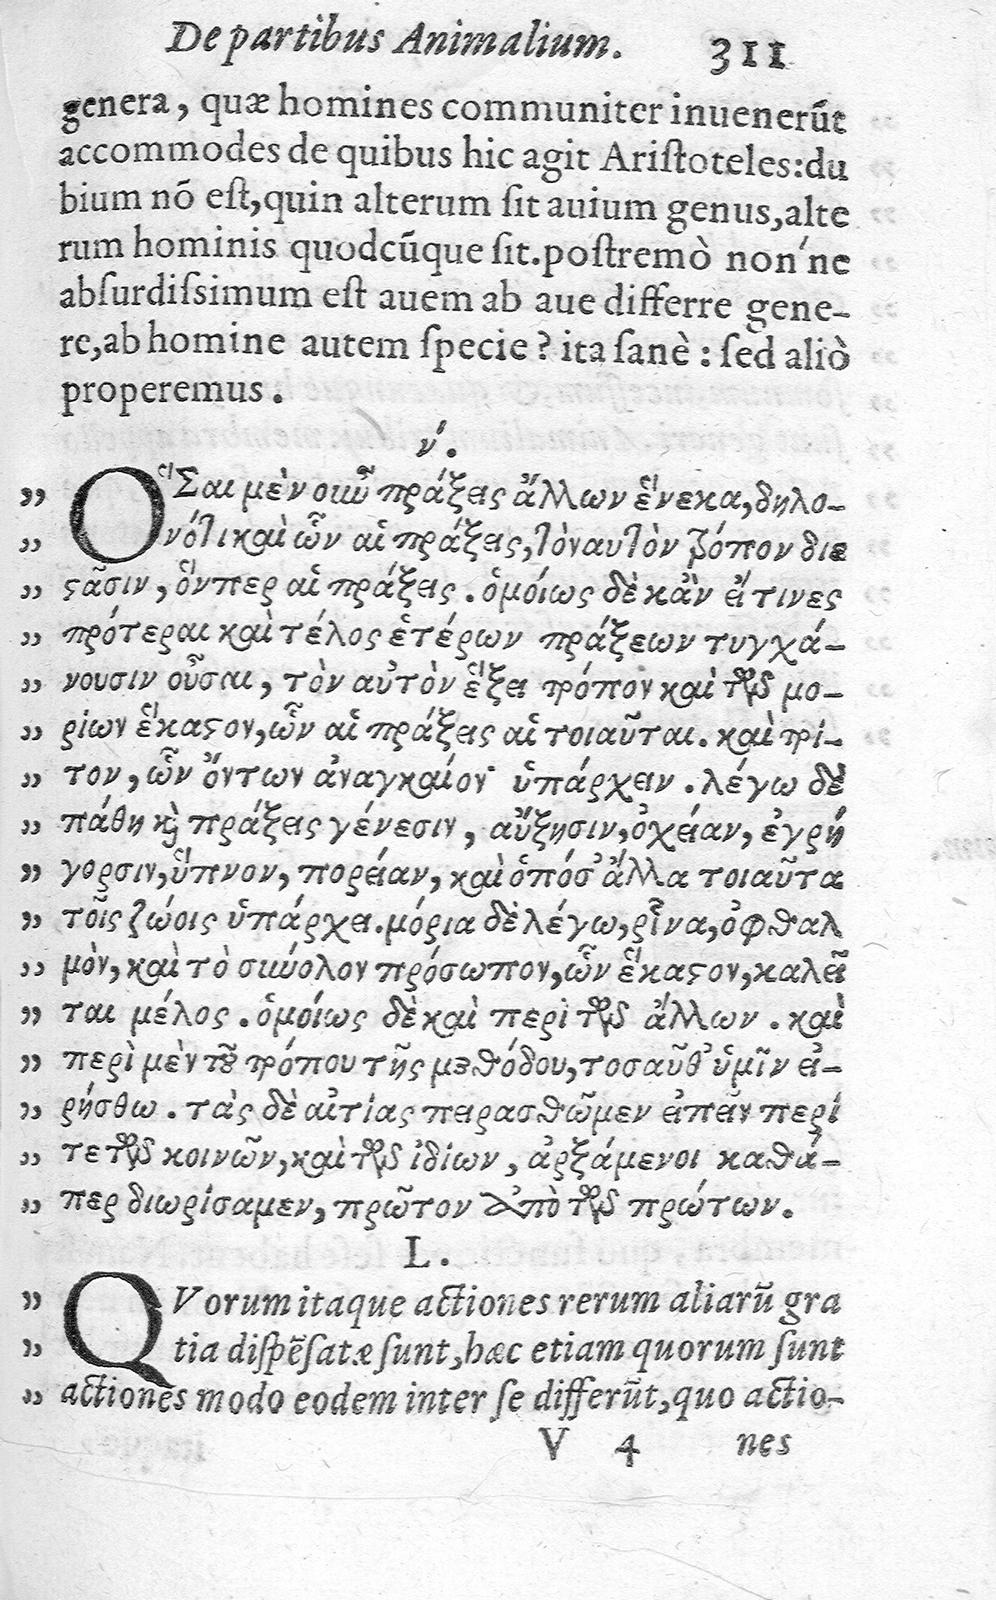 De partibus Animalium. 311
genera, quæ homines communiter inuenerũt
accommodes de quibus hic agit Ariſtoteles: du
bium nõ eſt, quin alterum ſit auium genus, alte
rum hominis quodcũque ſit. poſtremò non'ne
abſurdiſsimum eſt auem ab aue differre gene-
re, ab homine autem ſpecie? ita ſanè: ſed aliò
properemus.
ν'.
„ Ὅσαι μὲν οὖν πράξεις ἄλλων ἕνεκα, δηλο-
„ νότι καὶ ὧν αἱ πράξεις, τὸν αυτὸν τρόπον διε
„ ςᾶσιν, ὅνπερ αἱ πράξεις. ὁμοίως δὲ κἂν εἴ τινες
„ πρότεραι καὶ τέλος ἑτέρων πράξεων τυγχά-
„ νουσιν οὖσαι, τὸν αὐτὸν ἕξει τρόπον καὶ τῶν μο-
„ ρίων ἕκαςον, ὧν αἱ πράξεις αἱ τοιαῦται. καὶ τρί-
„ τον, ὧν ὄντων ἀναγκαίον ὑπάρχειν. λέγω δὲ
„ πάθη κỳ πράξεις γένεσιν, αὔξησιν, ὀχείαν, ἐγρή
„ γορσιν, ὕπνον, πορείαν, καὶ ὁπόσ' ἄλλα τοιαῦτα
„ τοῖς ζώοις ὑπάρχει. μόρια δὲ λέγω, ῥῖνα, ὀφθαλ
„ μὸν, καὶ τὸ σύνολον πρόσωπον, ὧν ἕκαςον, καλεῖ
„ ται μέλος. ὁμοίως δὲ καὶ περὶ τῶν ἄλλων. καὶ
„ περὶ μὲν τοῦ τρόπου τῆς μεθόδου, τοσαῦθ' ὑμῖν εἰ-
„ ρήσθω. τὰς δὲ αἰτίας πειρασθῶμεν εἰπεῖν περί
„ τε τῶν κοινῶν, καὶ τῶν ἰδίων, ἀρξάμενοι καθά-
„ περ διωρίσαμεν, πρῶτον ἀπὸ τῶν πρώτων.
L.
„ QVorum itaque actiones rerum aliarũ gra
„ tia diſpẽſatæ ſunt, hæc etiam quorum ſunt
„ actiones modo eodem inter ſe differũt, quo actio-
V 4 nes